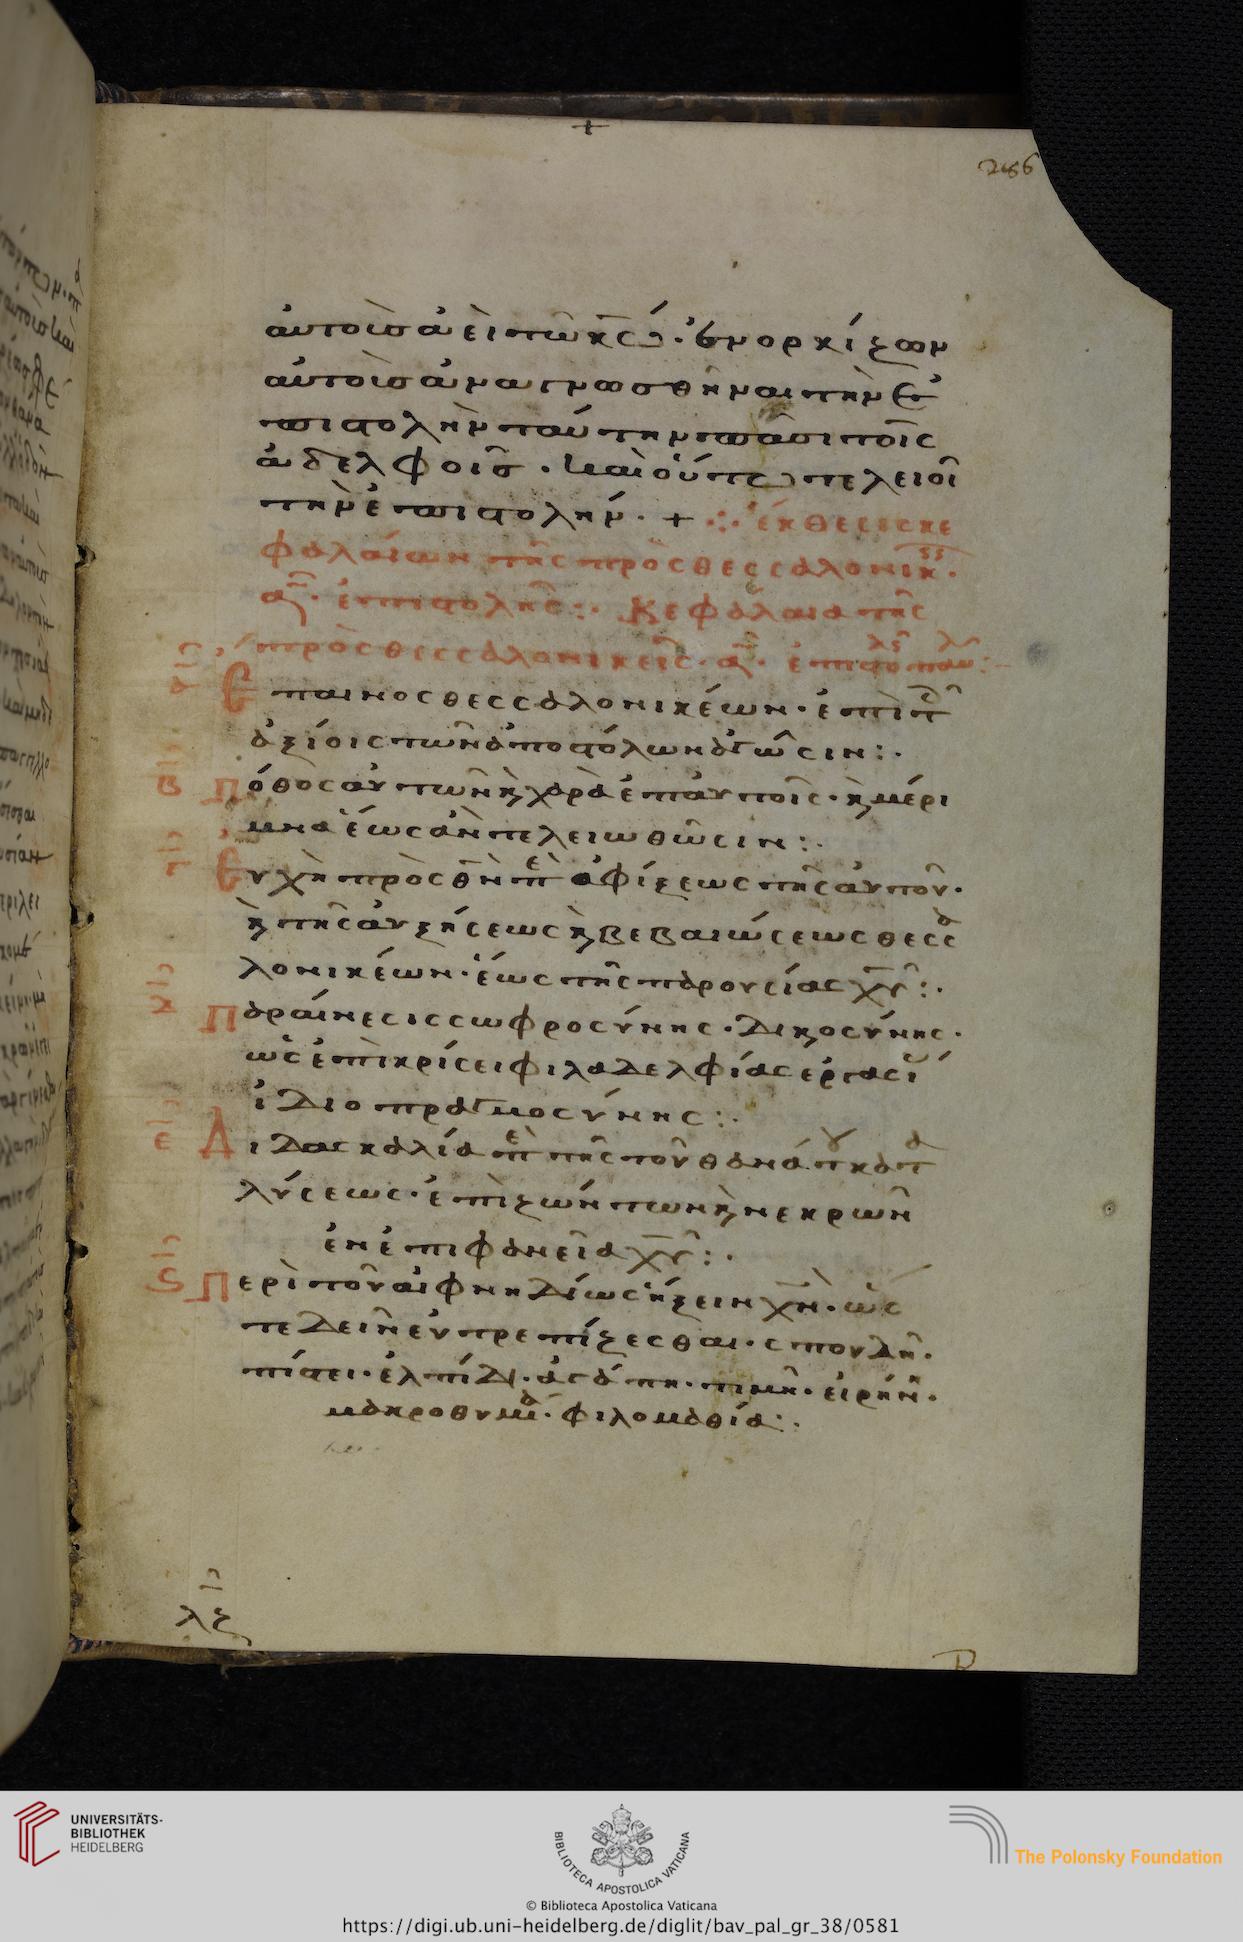 286
αὐτοῖσ ἃ εἶπ κς. ἐνορκίζων
αὐτοὶσ ἀναγνωσθῆναι τὴν ἐ
πιστολὴν ταύτην πᾶσι τοῖς
ἀδελφοῖσ. καὶ οὕτως τελειοῖ
τὴν ἐπιστολήν. + ἔκθεσις κε
φαλαίων τῆς πρὸς θεσσαλονικ.
α. ἐπιστολῆς:. Κεφάλαια τῆς
πρὸς θεσσαλονικεῖς. α. ἐπιστο παυ:
Ἔπαινος θεσσαλονικέων. ἐπὶ τ
ἀξίοις τῶν ἀποστόλων ἀγῶσιν:.
Β Πόθος αὐτῶν κ χαρὰ ἐπ αὐτοῖς. κ μέρι
μνα ἕως ἂν τελειωθῶσιν:.
Γ Εὐχὴ πρὸς θν π ἀφίξεως τῆς αὐτοῦ.
κ τῆς αὐξήσεως κ βεβαιώσεως θεσσα
λονικέων. ἕως τῆς παρουσίας χυ:.
Παραίνεσις σωφροσύνης. δικαιοσύνης.
ὡς ἐπὶ κρίσει φιλαδελφίας ἐργασι
ἰδιοπραγμοσύνης:.
Ε Διδασκαλία π τῆς τοῦ θανάτου κατα
λύσεως. ἐπὶ ζώντων κ νεκρῶν
ἐν ἐπιφανεία χυ:.
Ϛ Περὶ τοῦ αἰφνηδίως ἥξειν χν. ὡς
τε δεῖν εὐτρεπίζεσθαι. σπουδῆ.
πίστει. ἐλπίδι. ἀγάπη. τιμῆ. εἰρήνη.
μακροθυμια. φιλομαθία:.
λζ
UNIVERSITÄTS-
BIBLIOTHEK
HEIDELBERG
BIBLIOTECA APOSTOLICA VATICANA
The Polonsky Foundation
© Biblioteca Apostolica Vaticana
https://digi.ub.uni-heidelberg.de/diglit/bav_pal_gr_38/0581